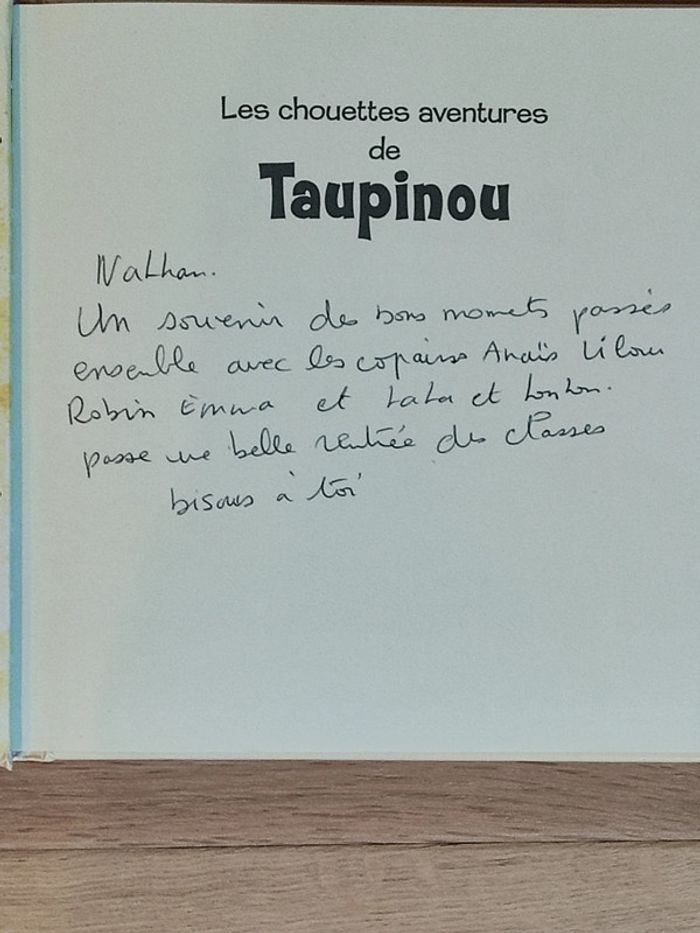 Les chouettes aventures
de
Taupinou
Nathan.
Un souvenir des bons momets passés
ensemble avec les copains Anaïs Lilou
Robin Emma et tata et tonton.
passe une belle rentrée des classes
bisous à toi